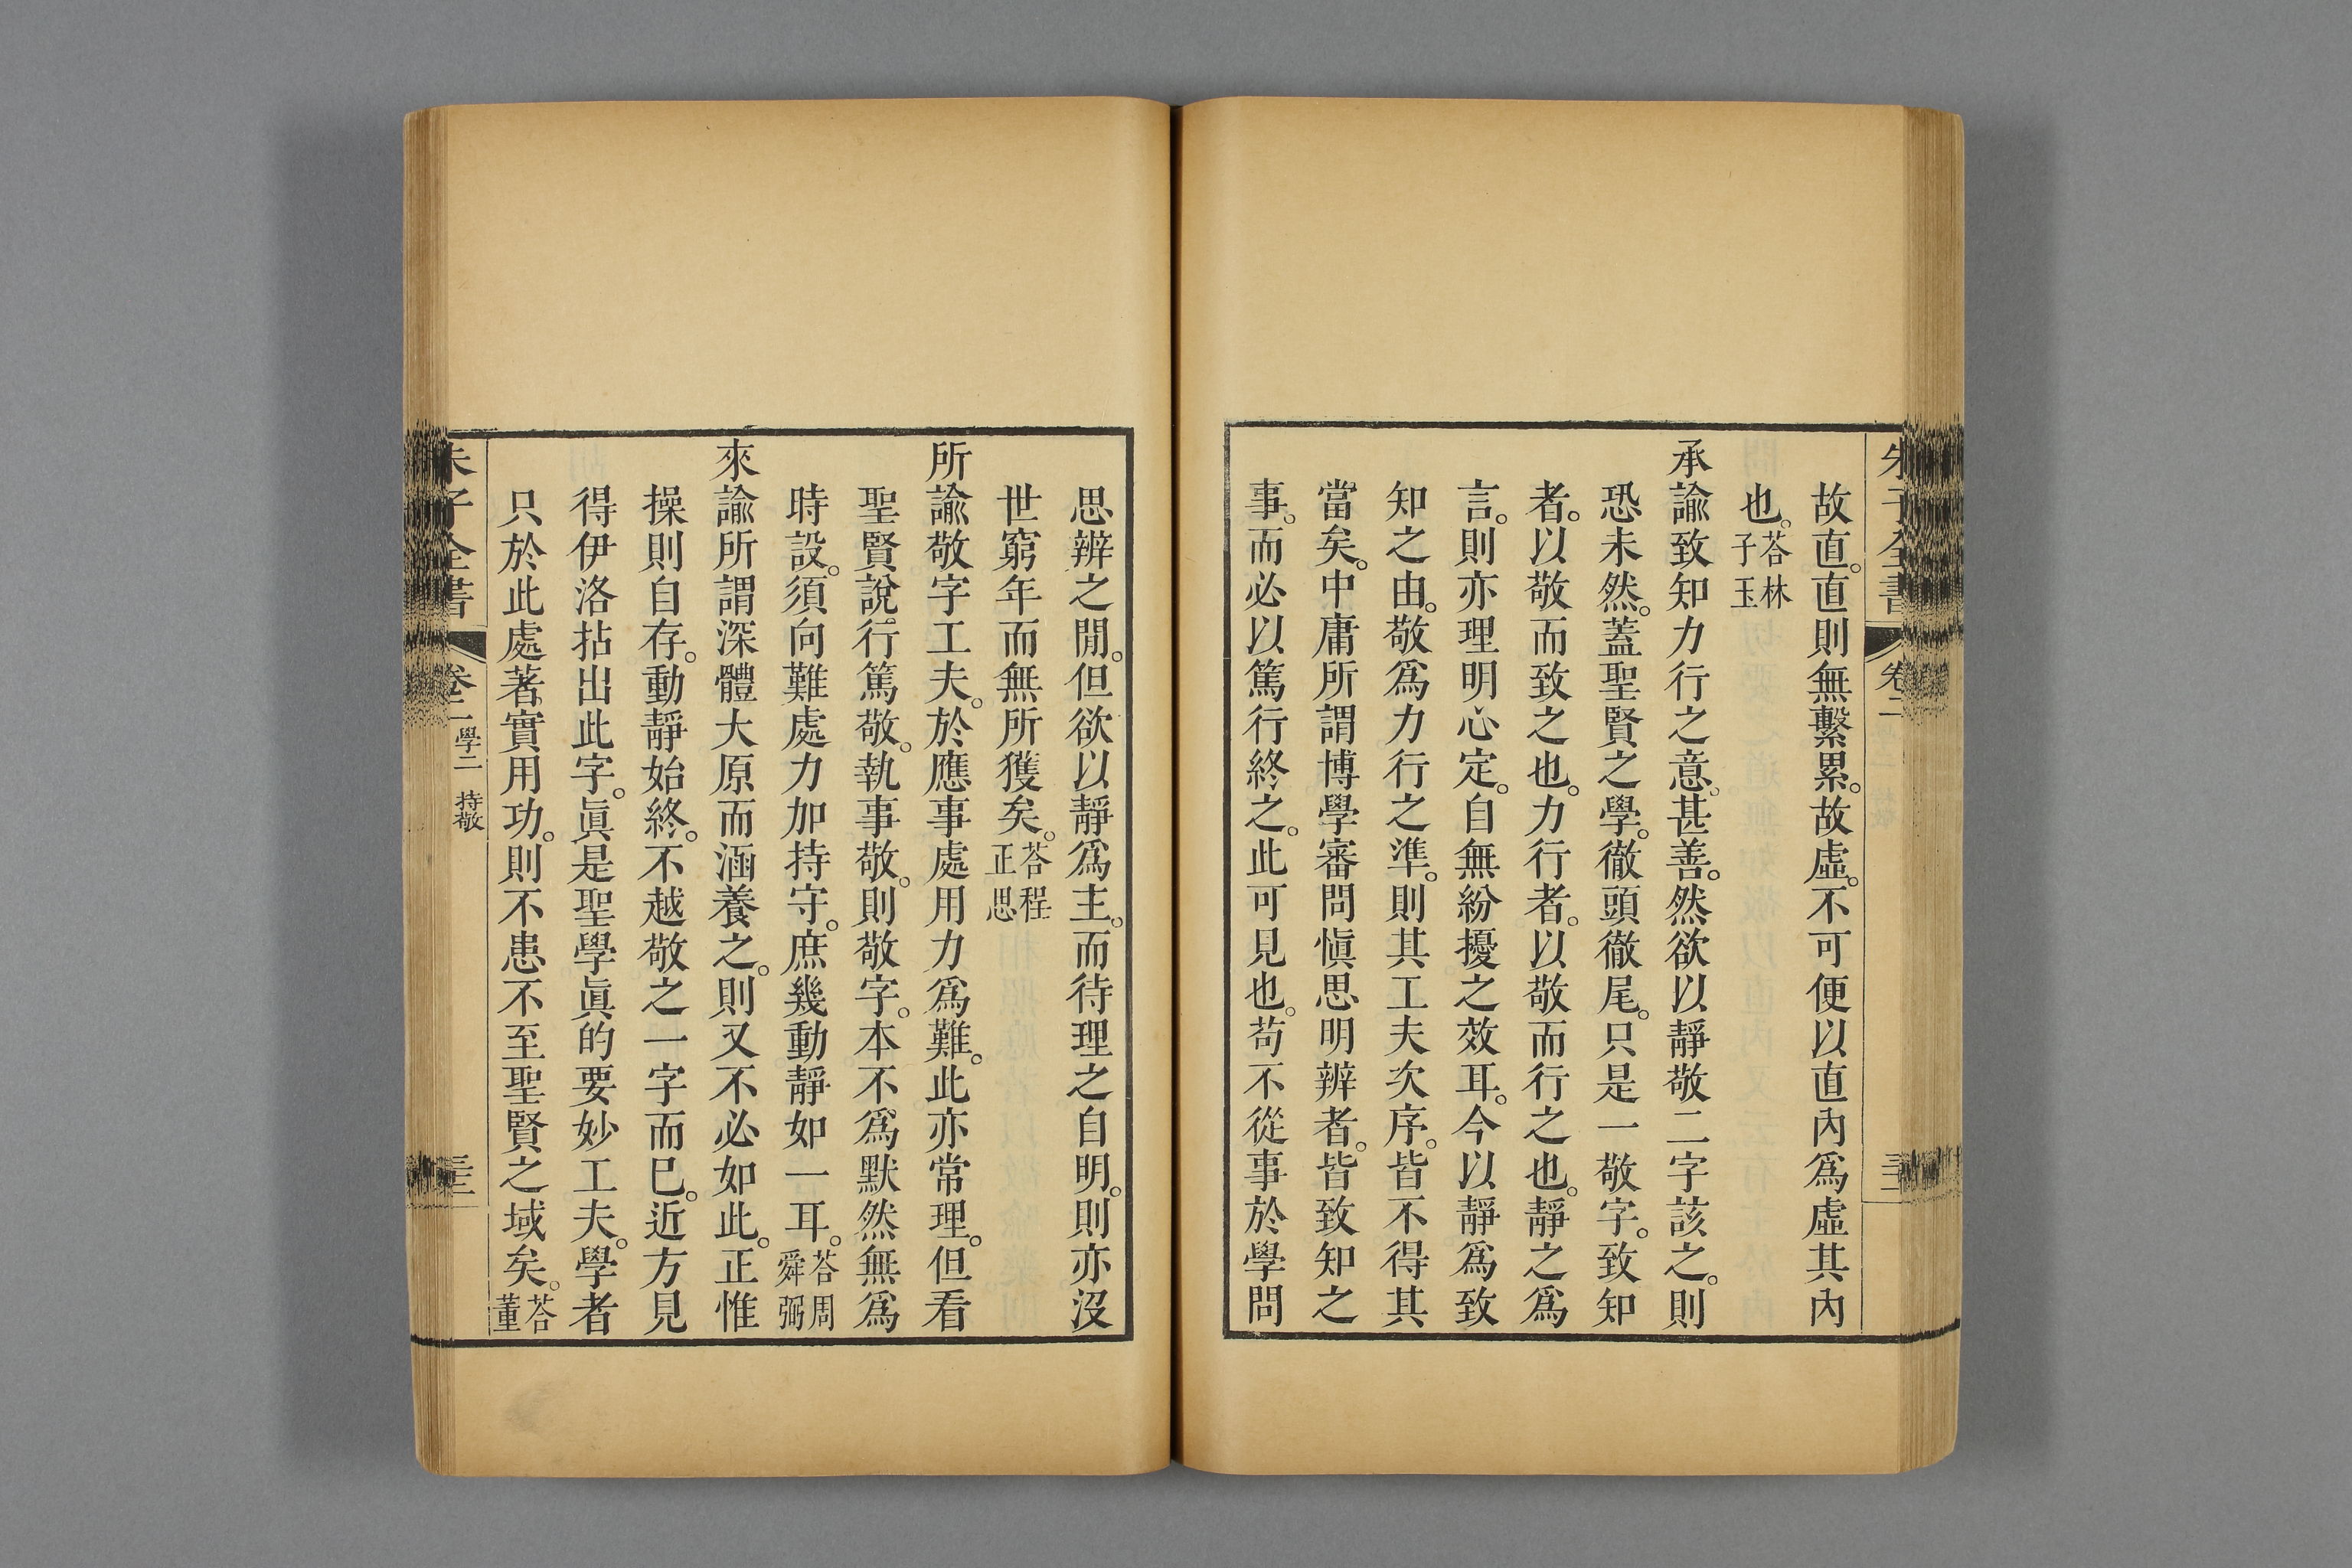 朱子全書 卷二
故直。直則無繫累。故虛。不可便以直內爲虛其內
也。荅林子玉
承諭致知力行之意。甚善。然欲以靜敬二字該之。則
恐未然。蓋聖賢之學。徹頭徹尾。只是一敬字。致知
者。以敬而致之也。力行者。以敬而行之也。靜之爲
言。則亦理明心定。自無紛擾之效耳。今以靜爲致
知之由。敬爲力行之準。則其工夫次序。皆不得其
當矣。中庸所謂博學審問愼思明辨者。皆致知之
事。而必以篤行終之。此可見也。苟不從事於學問
思辨之閒。但欲以靜爲主。而待理之自明。則亦沒
世窮年而無所獲矣。荅程正思
所諭敬字工夫。於應事處用力爲難。此亦常理。但看
聖賢說。行篤敬。執事敬。則敬字。本不爲默然無爲
時設。須向難處力加持守。庶幾動靜如一耳。荅周舜弼
來諭所謂深體大原而涵養之。則又不必如此。正惟
操則自存。動靜始終。不越敬之一字而已。近方見
得伊洛拈出此字。眞是聖學眞的要妙工夫。學者
只於此處著實用功。則不患不至聖賢之域矣。荅董
朱子全書 卷二 學二 持敬